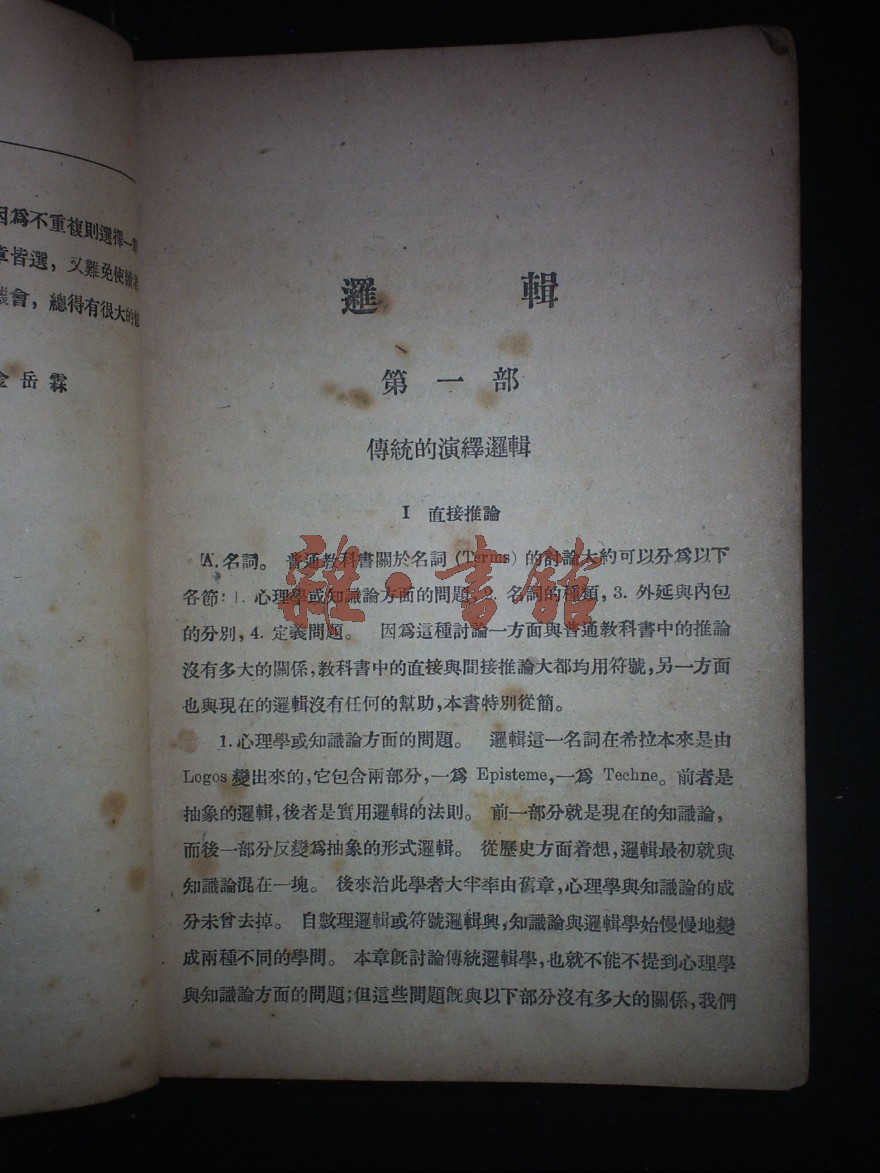 因爲不重複則選擇一
章皆選，又難免使讀者
機會，總得有很大的
金岳霖
邏輯
第一部
傳統的演繹邏輯
I 直接推論
A. 名詞。 普通教科書關於名詞 (Terms) 的討論大約可以分爲以下
各節: 1. 心理學或知識論方面的問題, 2. 名詞的種類, 3. 外延與內包
的分別, 4. 定義問題。 因爲這種討論一方面與普通教科書中的推論
沒有多大的關係,教科書中的直接與間接推論大都均用符號,另一方面
也與現在的邏輯沒有任何的幫助,本書特別從簡。
1. 心理學或知識論方面的問題。 邏輯這一名詞在希拉本來是由
Logos 變出來的,它包含兩部分,一爲 Episteme,一爲 Techne。前者是
抽象的邏輯,後者是實用邏輯的法則。 前一部分就是現在的知識論,
而後一部分反變爲抽象的形式邏輯。 從歷史方面着想,邏輯最初就與
知識論混在一塊。 後來治此學者大半率由舊章,心理學與知識論的成
分未曾去掉。 自數理邏輯或符號邏輯興,知識論與邏輯學始慢慢地變
成兩種不同的學問。 本章旣討論傳統邏輯學,也就不能不提到心理學
與知識論方面的問題;但這些問題旣與以下部分沒有多大的關係,我們
雜·書館